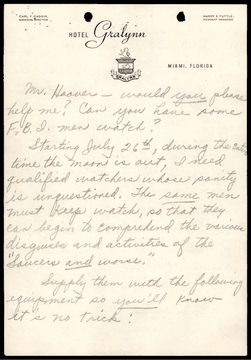 CARL T. CASSIN
HARRY E. TUTTLE
HOTEL Gralynn
GRALYNN
MIAMI, FLORIDA
Mr. Hoover — would you please
help me? Can you have some
F.B.I. men watch?
Starting July 26th, during the entire
time the moon is out, I need
qualified watchers whose sanity
is unquestioned. The same men
must keep watch, so that they
can begin to comprehend the various
disguises and activities of the
"Saucers and worse."
Supply them with the following
equipment so you'll know
it's no trick: